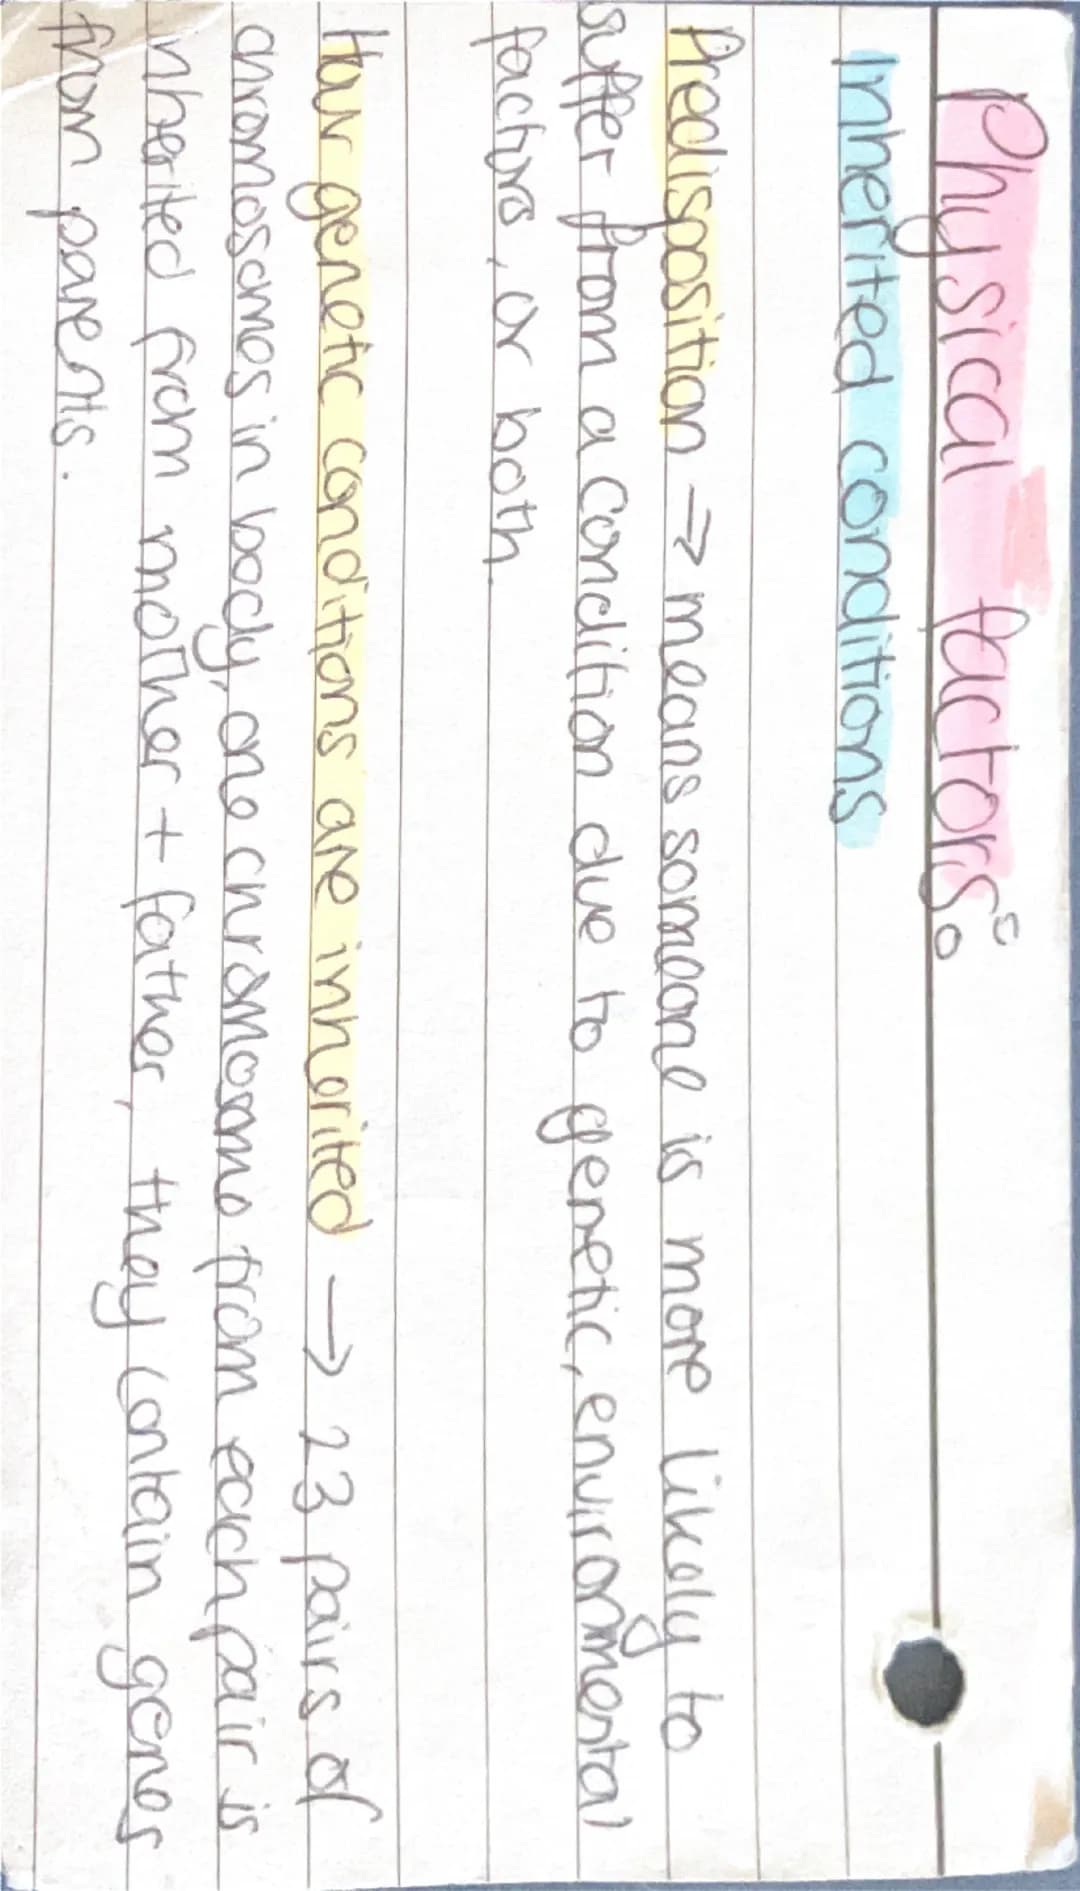 Physical factors:
Inherited conditions
Predisposition ⇒ means someone is more likely to
suffer from a condition due to genetic, environmental
factors, or both.
How genetic conditions are inherited → 23 pairs of
chromosomes in body, one chromosome from each pair is
inherited from mother + father, they contain genes
from parents.